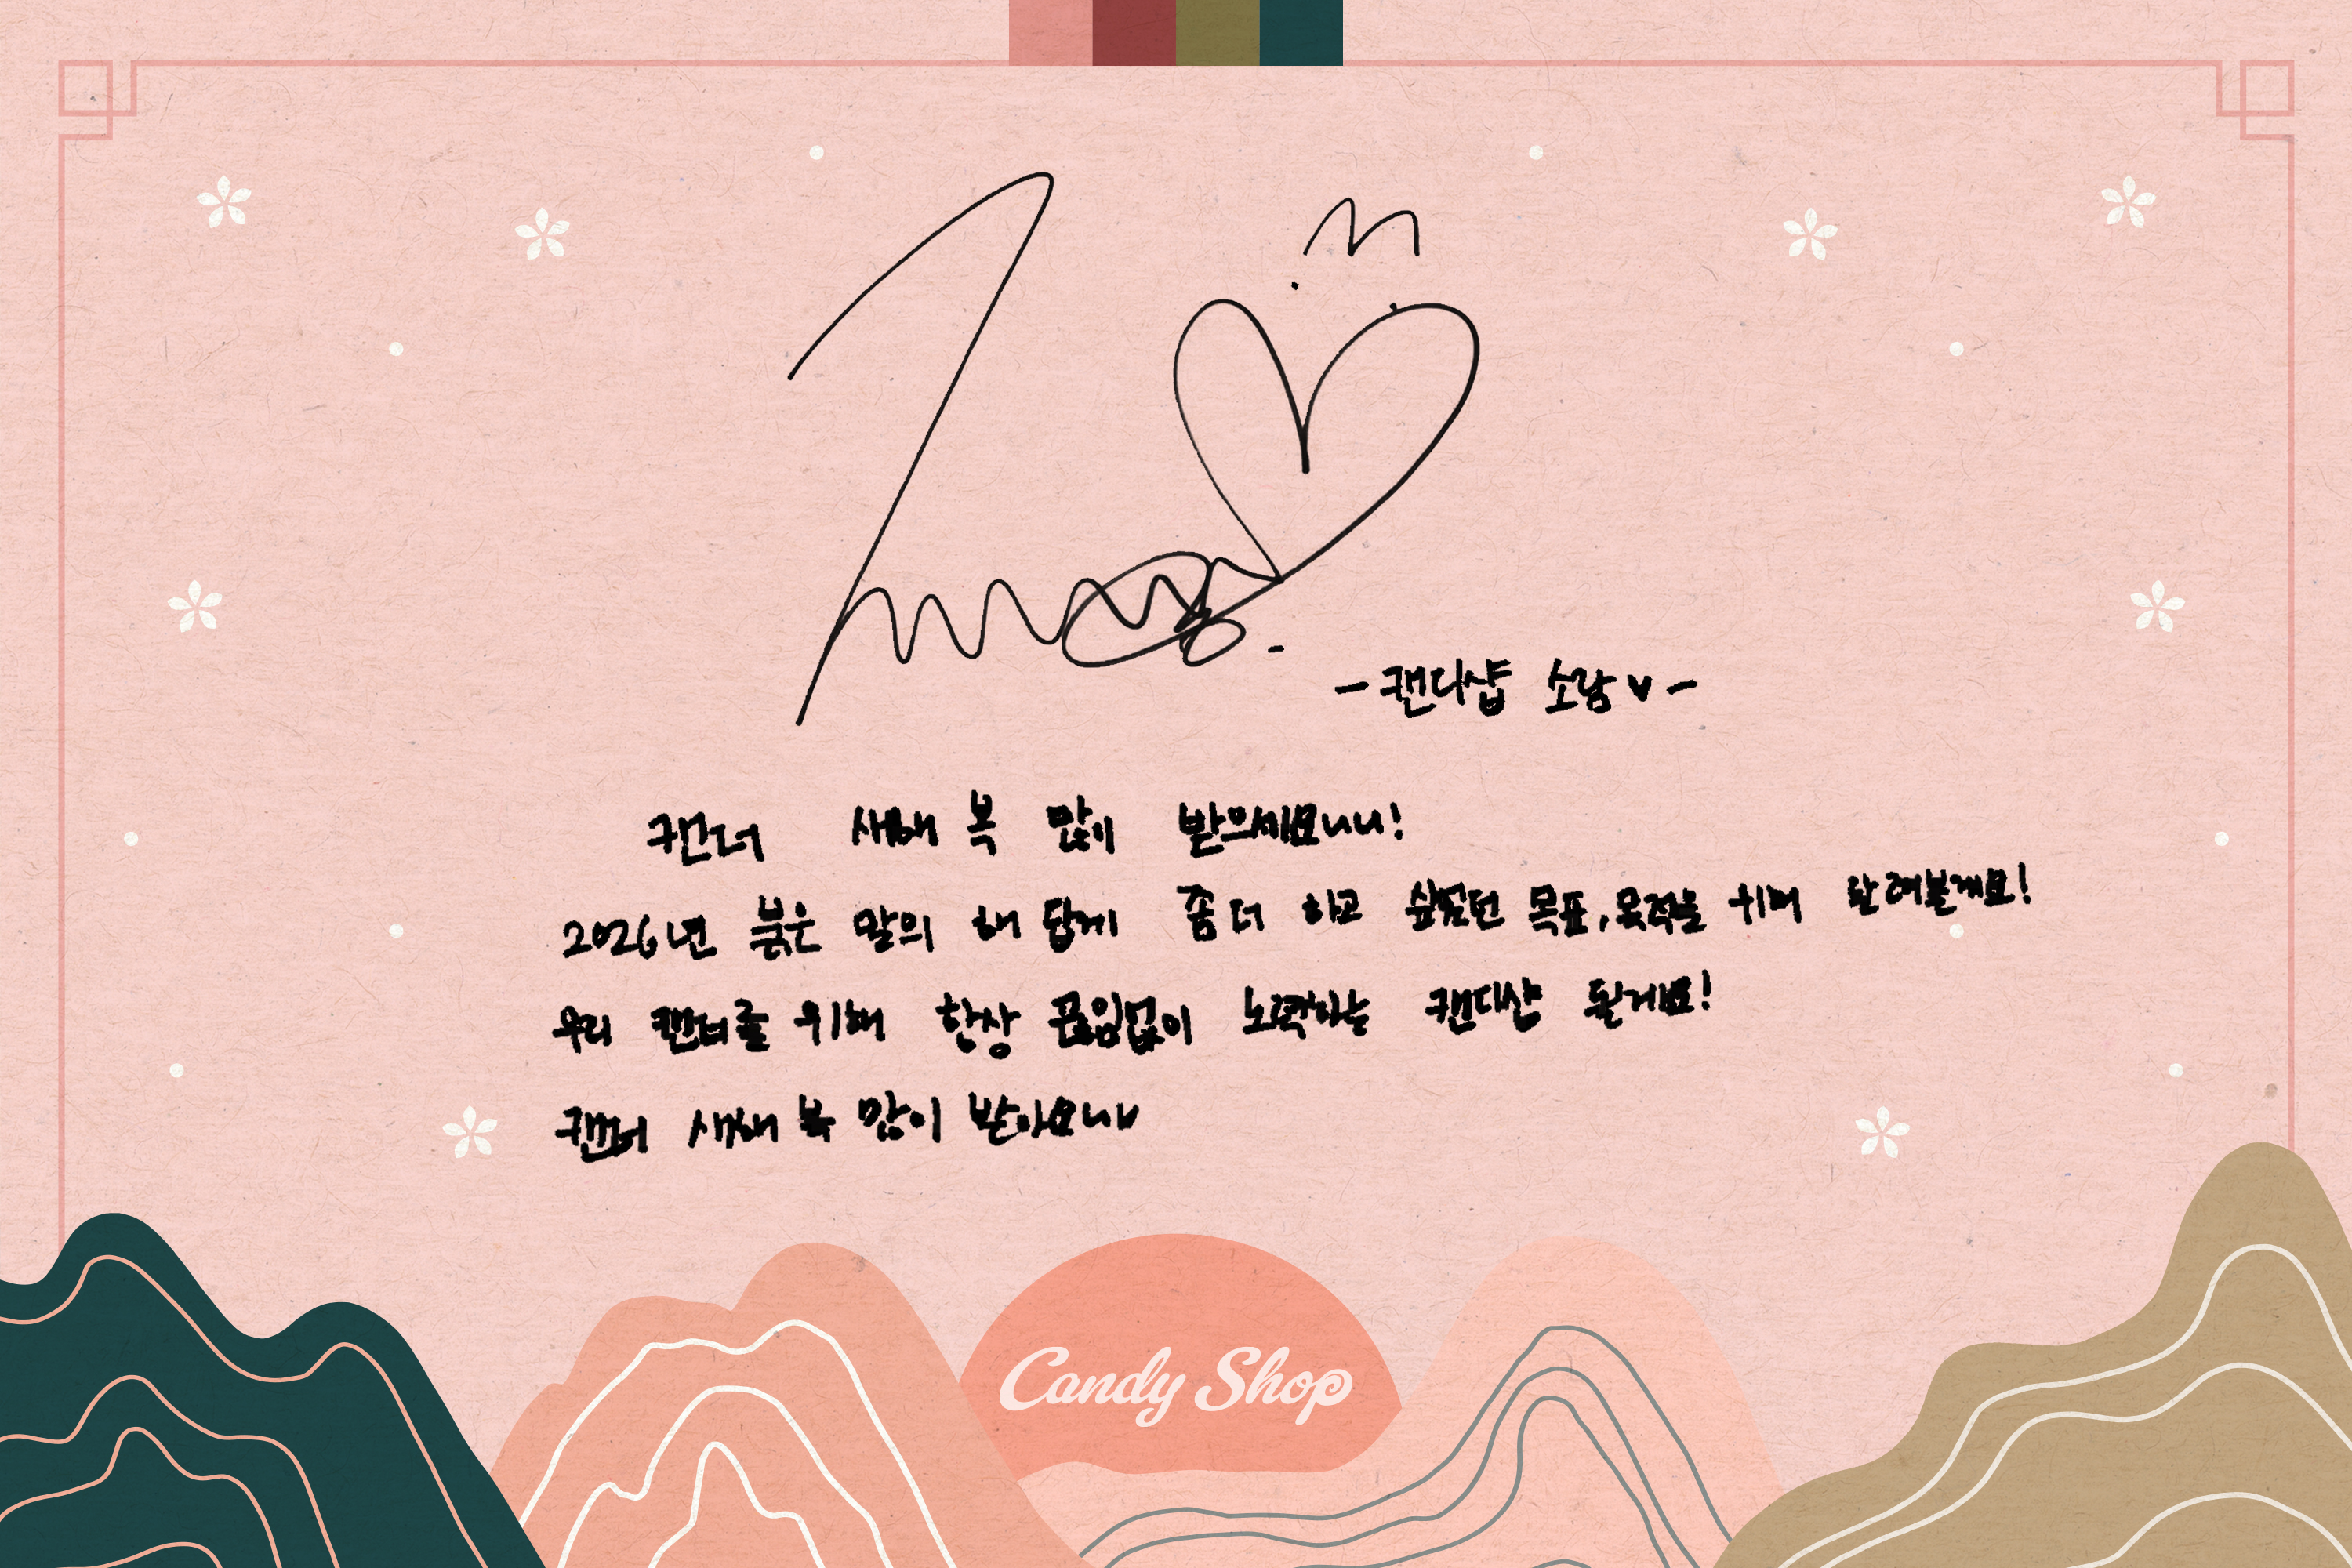 -캔디샵 소람♥-
캔너 새해 복 많이 받으세요
2026년 붉은 말의 해 답게 좀 더 하고 싶었던 목표, 목적을 위해 달려볼게요!
우리 캔너를 위해 항상 끊임없이 노력하는 캔디샵 될게요!
캔너 새해 복 많이 받아요
Candy Shop